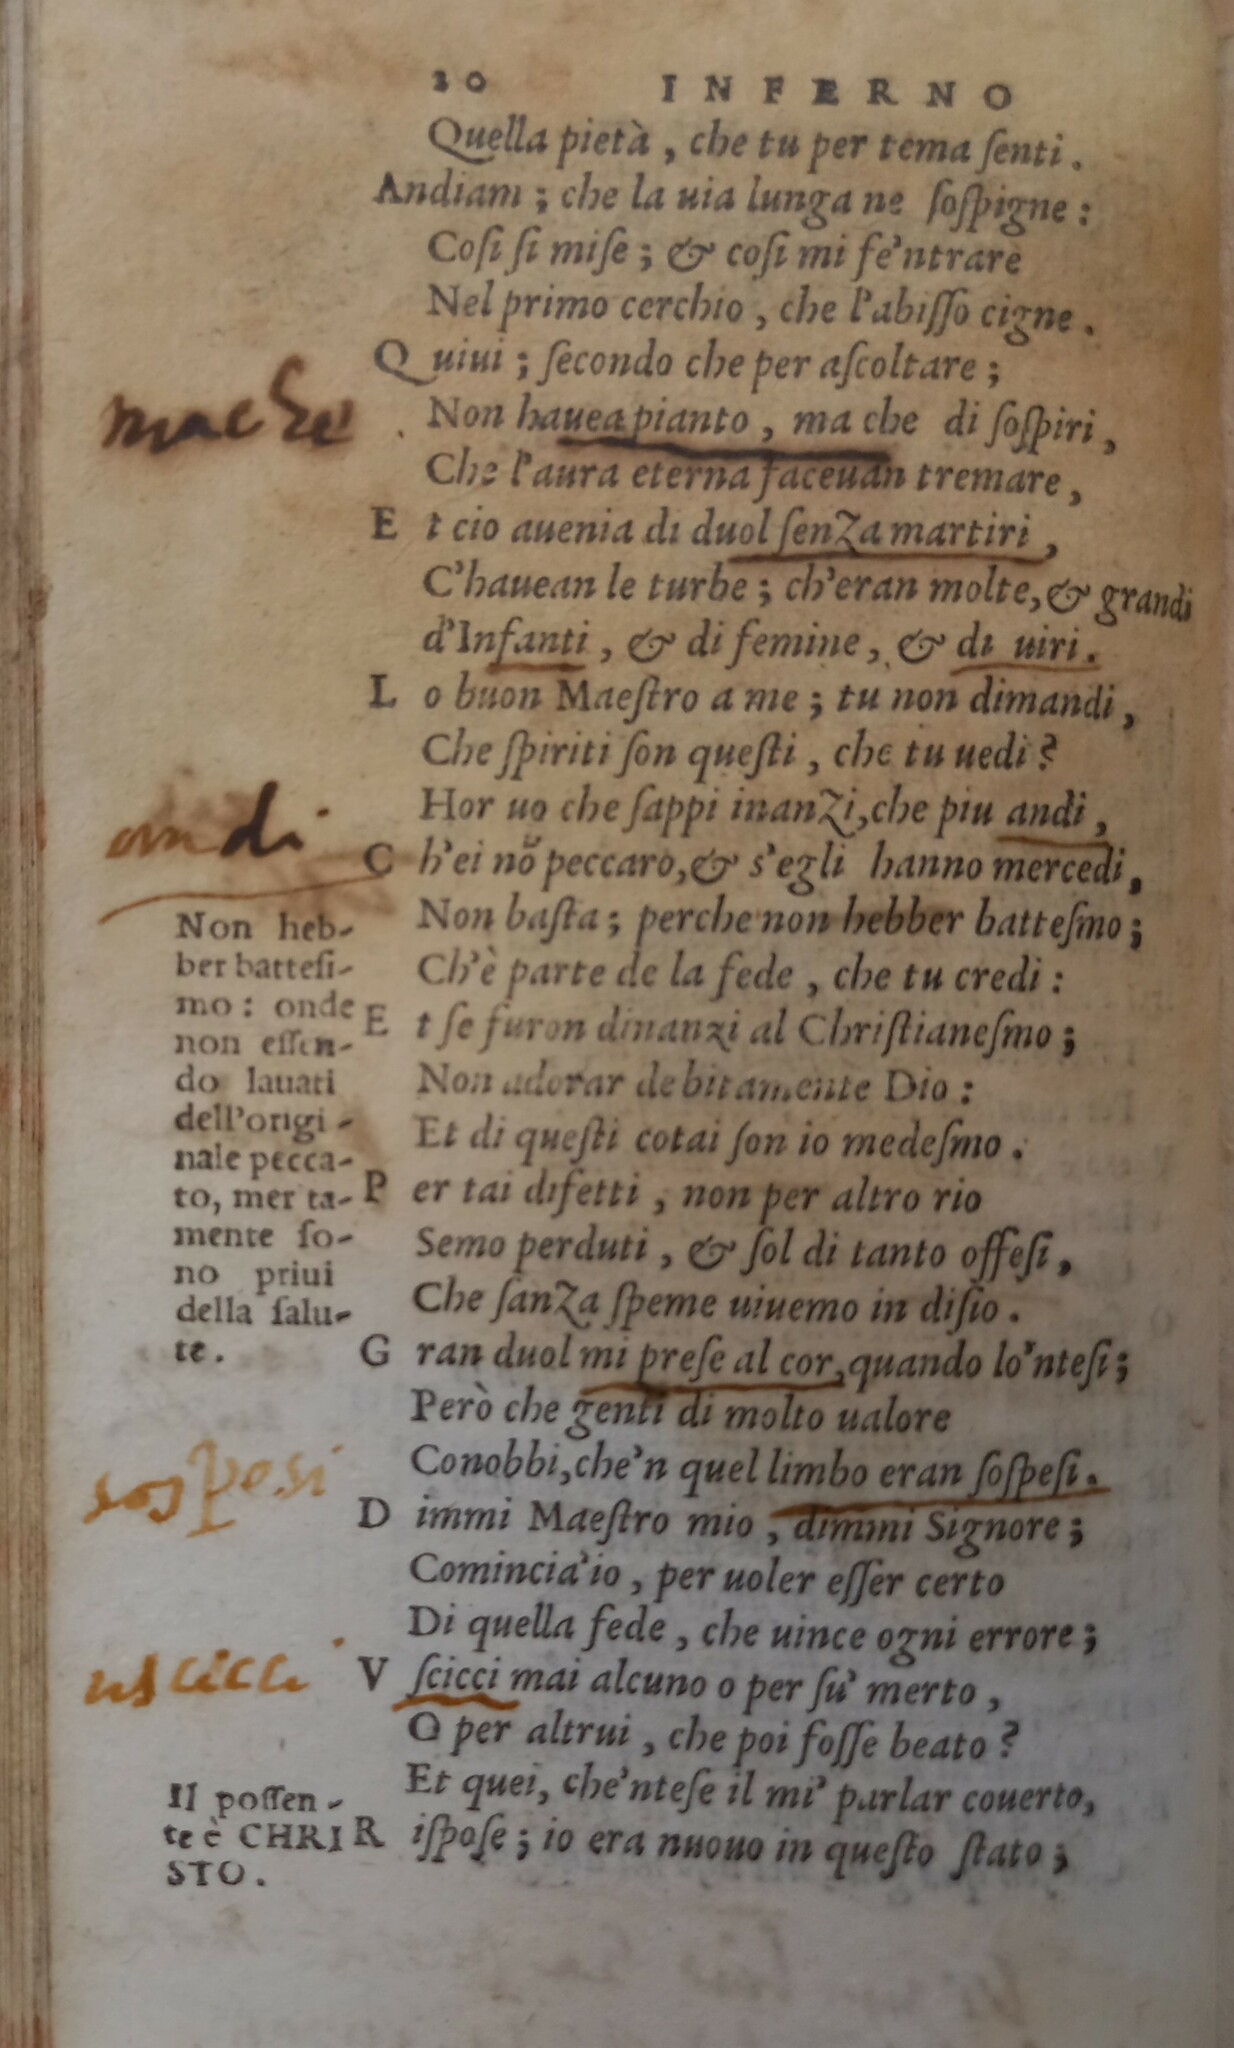 20 INFERNO
Quella pietà, che tu per tema ſenti.
Andiam; che la uia lunga ne ſoſpigne:
Coſi ſi miſe; & coſi mi fe'ntrare
Nel primo cerchio, che l'abiſſo cigne.
Quiui; ſecondo che per aſcoltare;
mache
Non hauea pianto, ma che di ſoſpiri,
Che l'aura eterna faceuan tremare,
Et cio auenia di duol ſenza martiri,
C'hauean le turbe; ch'eran molte, & grandi
d'Infanti, & di femine, & di uiri.
Lo buon Maeſtro a me; tu non dimandi,
Che ſpiriti ſon queſti, che tu uedi?
Hor uo che ſappi inanzi, che piu andi,
andi
Ch'ei nō peccaro, & s'egli hanno mercedi,
Non baſta; perche non hebber batteſmo;
Ch'è parte de la fede, che tu credi:
Et ſe furon dinanzi al Chriſtianeſmo;
Non adorar debitamente Dio:
Et di queſti cotai ſon io medeſmo.
Per tai difetti, non per altro rio
Semo perduti, & ſol di tanto offeſi,
Che ſanza ſpeme uiuemo in diſio.
Non heb-
ber batteſi-
mo: onde
non eſſen-
do lauati
dell'origi-
nale pecca-
to, mer ta-
mente ſo-
no priui
della ſalu-
te.
Gran duol mi preſe al cor, quando lo'nteſi;
Però che genti di molto ualore
Conobbi, che'n quel limbo eran ſoſpeſi.
sospesi
Dimmi Maeſtro mio, dimmi Signore;
Comincia'io, per uoler eſſer certo
Di quella fede, che uince ogni errore;
uscicci
Vſcicci mai alcuno o per ſu' merto,
O per altrui, che poi foſſe beato?
Et quei, che'nteſe il mi' parlar couerto,
Riſpoſe; io era nuouo in queſto ſtato;
Il poſſen-
te è CHRI
STO.